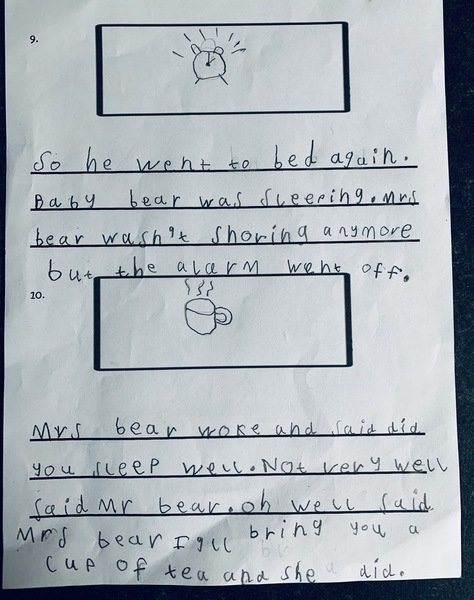 9.
So he went to bed again.
Baby bear was sleeping. Mrs
bear wasn't shoring anymore
but the alarm went off.
10.
Mrs bear woke and said did
you sleep well. Not very well
said Mr bear. oh well said
Mrs bear I'll bring you a
cup of tea and she did.